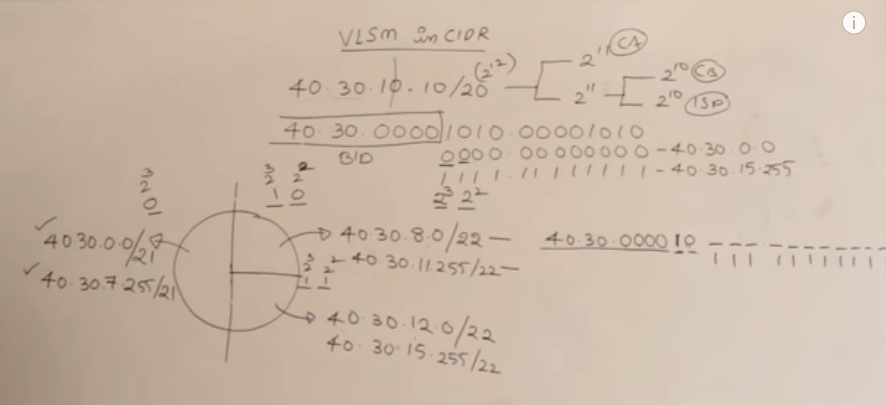 VLSM in CIDR
40.30.10.10/20 (2^12)
2^11 CA
2^11
2^10 CB
2^10 ISP
40.30.00001010.00001010
BID
0000.00000000 - 40.30.0.0
1111.11111111 - 40.30.15.255
2^3 2^2
2^3
0
2^3 2^2
1 0
40.30.0.0/21
40.30.7.255/21
40.30.8.0/22
40.30.11.255/22
2^3 2^2
1 1
40.30.12.0/22
40.30.15.255/22
40.30.000010